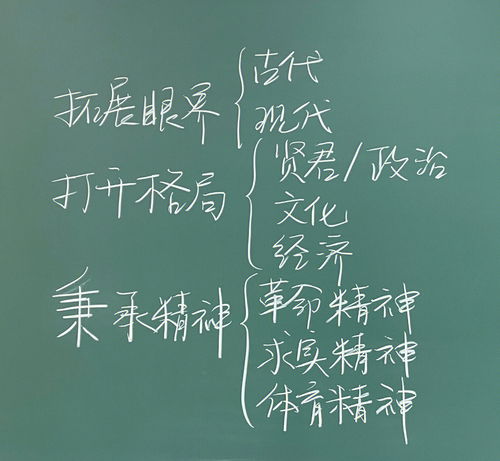 拓展眼界{古代
现代
打开格局{贤君/政治
文化
经济
秉承精神{革命精神
求实精神
体育精神